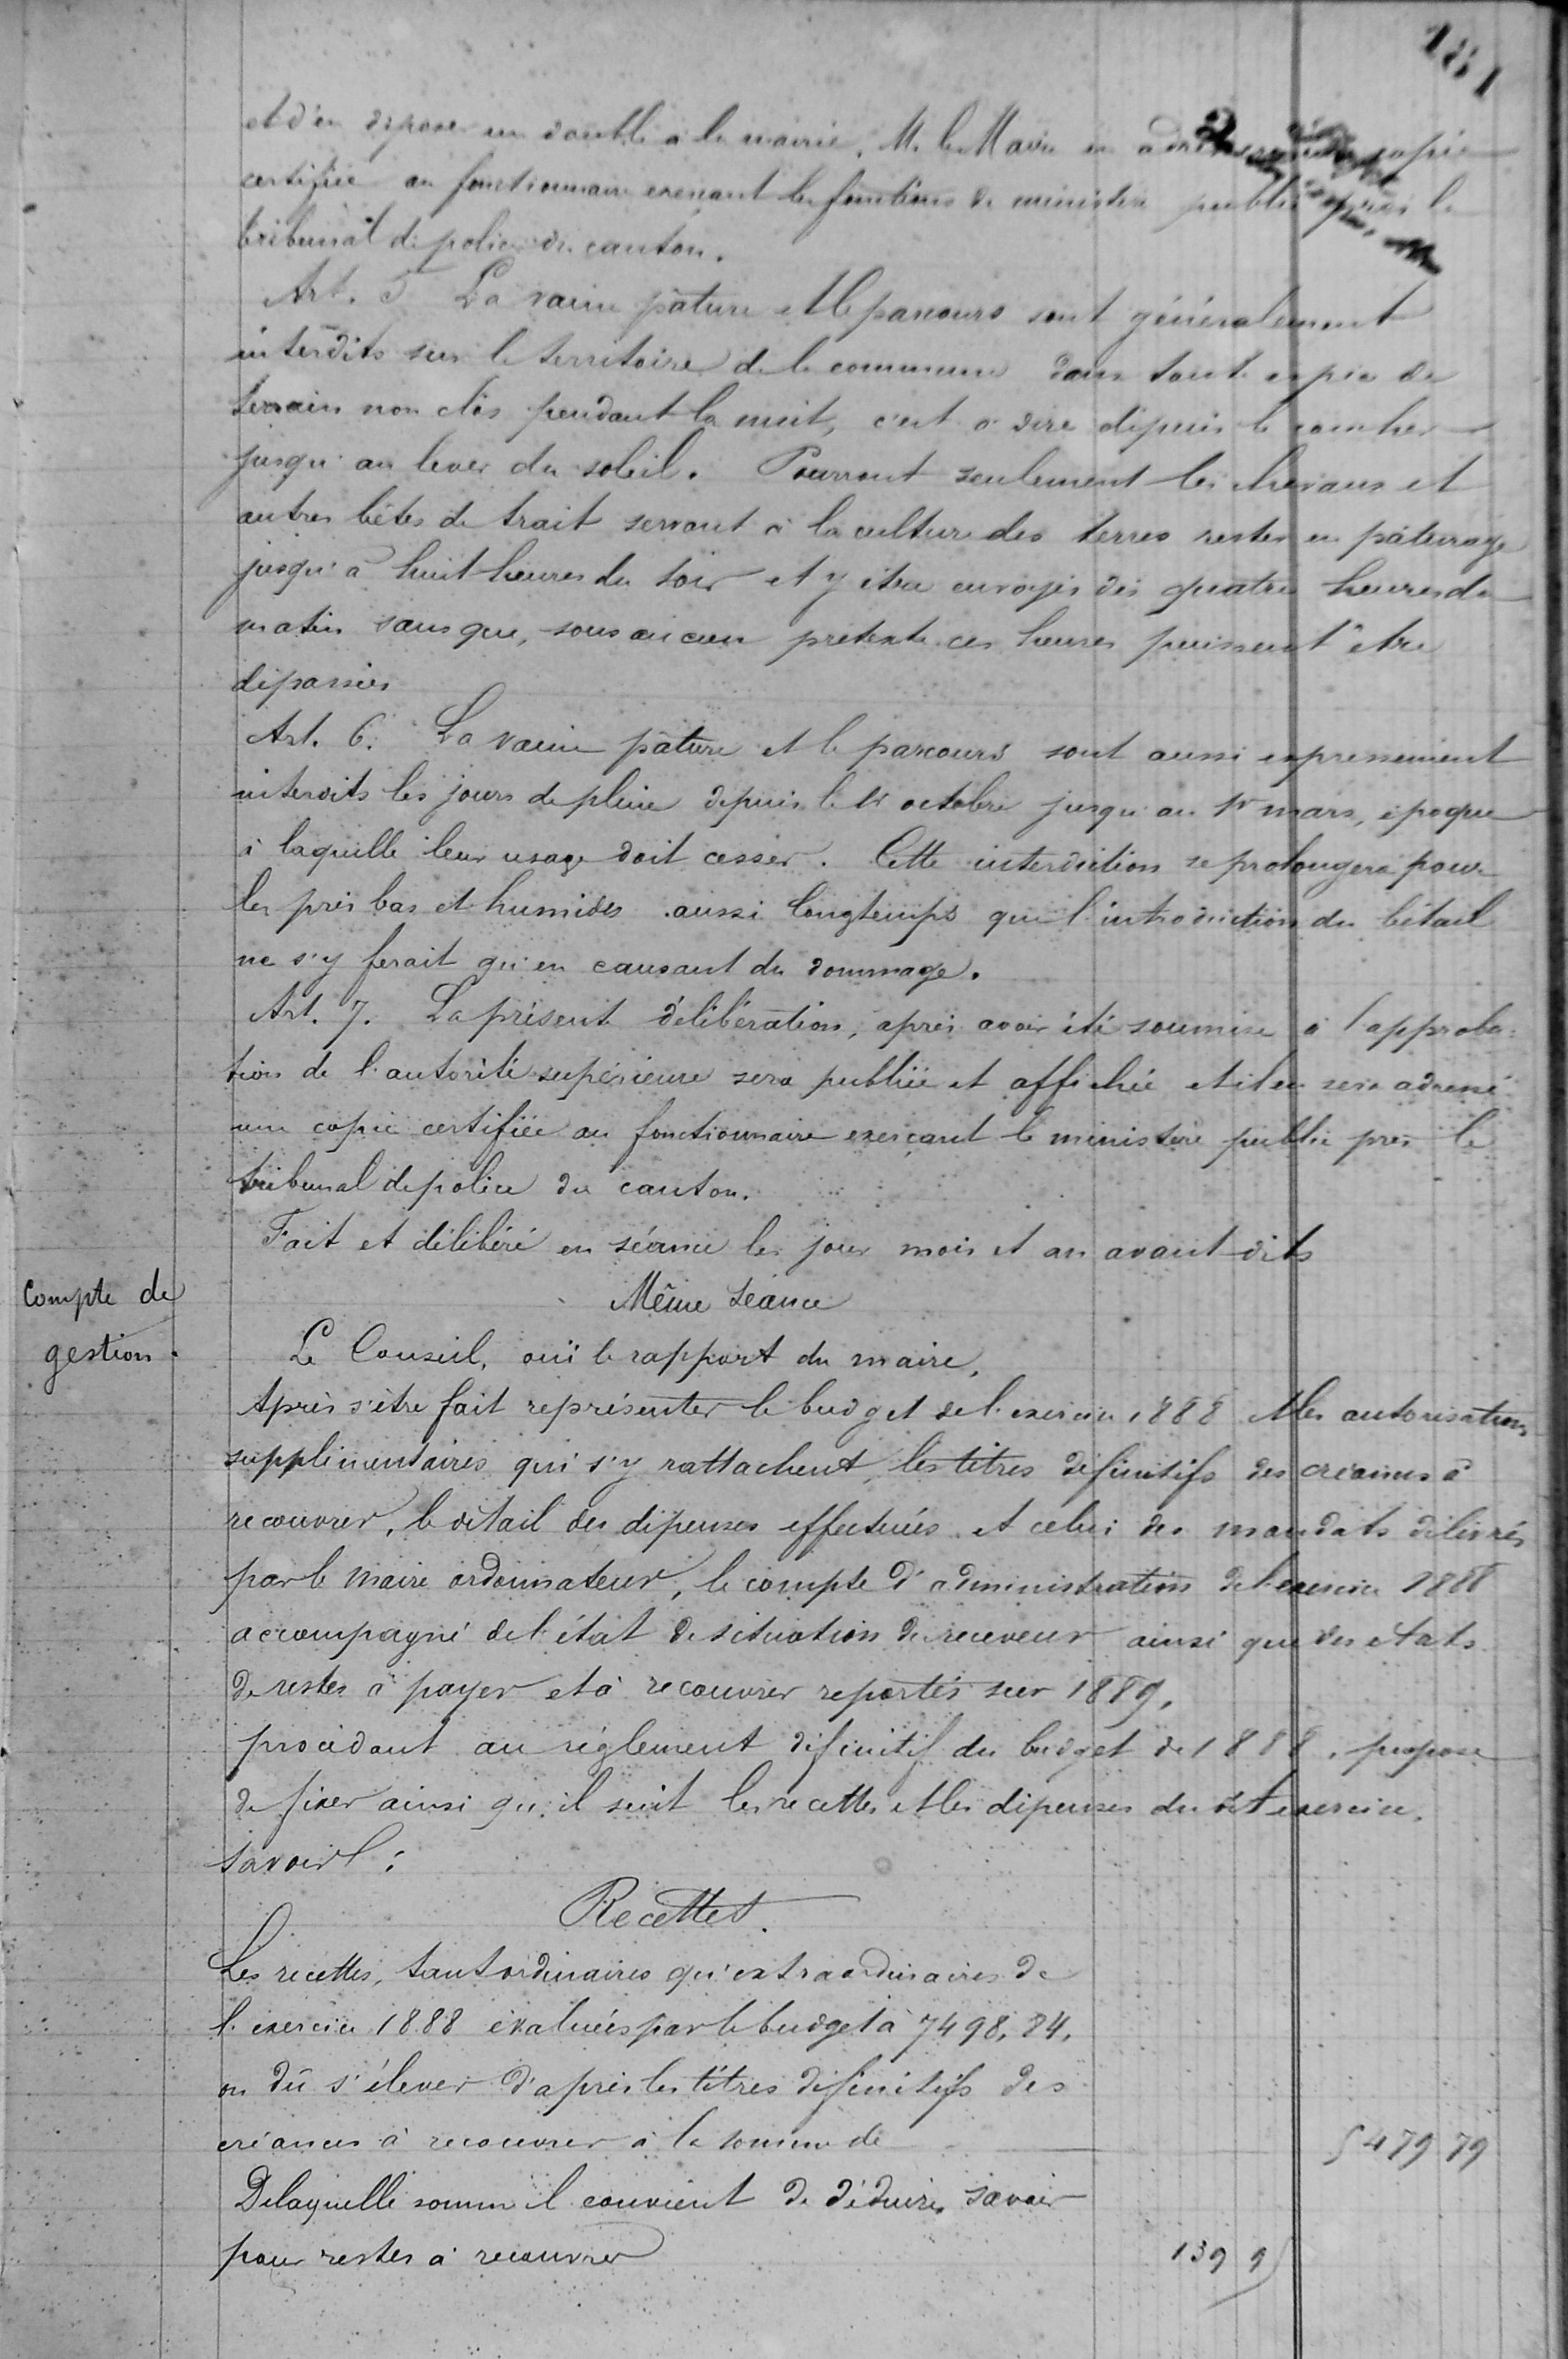 181
et d'en déposer un double à la mairie. M. le Maire en adressera copie
certifiée au fonctionnaire exerçant les fonctions de ministère public près le
tribunal de police du canton.
Art. 5 La vaine pâture et le parcours sont généralement
interdits sur le territoire de la commune dans toute espèce de
terrain non clos pendant la nuit, c'est à dire depuis le coucher
jusqu'au lever du soleil. Pourront seulement les chevaux et
autres bêtes de trait servant à la culture des terres rester en pâturage
jusqu'à huit heures du soir et y être envoyés dès quatre heures du
matin sans que, sous aucun prétexte ces heures puissent être
dépassées
Art. 6. La vaine pâture et le parcours sont aussi expressément
interdits les jours de pluie depuis le 1er octobre jusqu'au 1er mars, époque
à laquelle leur usage doit cesser. Cette interdiction se prolongera pour
les prés bas et humides aussi longtemps que l'introduction du bétail
ne s'y ferait qu'en causant du dommage.
Art. 7. La présente délibération, après avoir été soumise à l'approba-
tion de l'autorité supérieure sera publiée et affichée et il en sera adressé
une copie certifiée au fonctionnaire exerçant le ministère public près le
tribunal de police du canton.
Fait et délibéré en séance les jour mois et an avant dits
Même Séance
Compte de
gestion.
Le Conseil, ouï le rapport du maire,
Après s'être fait représenter le budget de l'exercice 1888 et les autorisations
supplémentaires qui s'y rattachent, les titres définitifs des créances à
recouvrer, le détail des dépenses effectuées et celui des mandats délivrés
par le Maire ordonnateur, le compte d'administration de l'exercice 1888
accompagné de l'état de situation du receveur ainsi que des etats
de restes à payer et à recouvrer reportés sur 1889,
procédant au règlement définitif du budget de 1888, propose
de fixer ainsi qu'il suit les recettes et les dépenses du dit exercice,
savoir :
Recettes.
Les recettes, tant ordinaires qu'extraordinaires de
l'exercice 1888 évaluées par le budget à 7498,84,
on dû s'élever d'après les titres définitifs des
créances à recouvrer à la somme de 5479 79
De laquelle somme il convient de déduire, savoir
pour restes à recouvrer 139 95